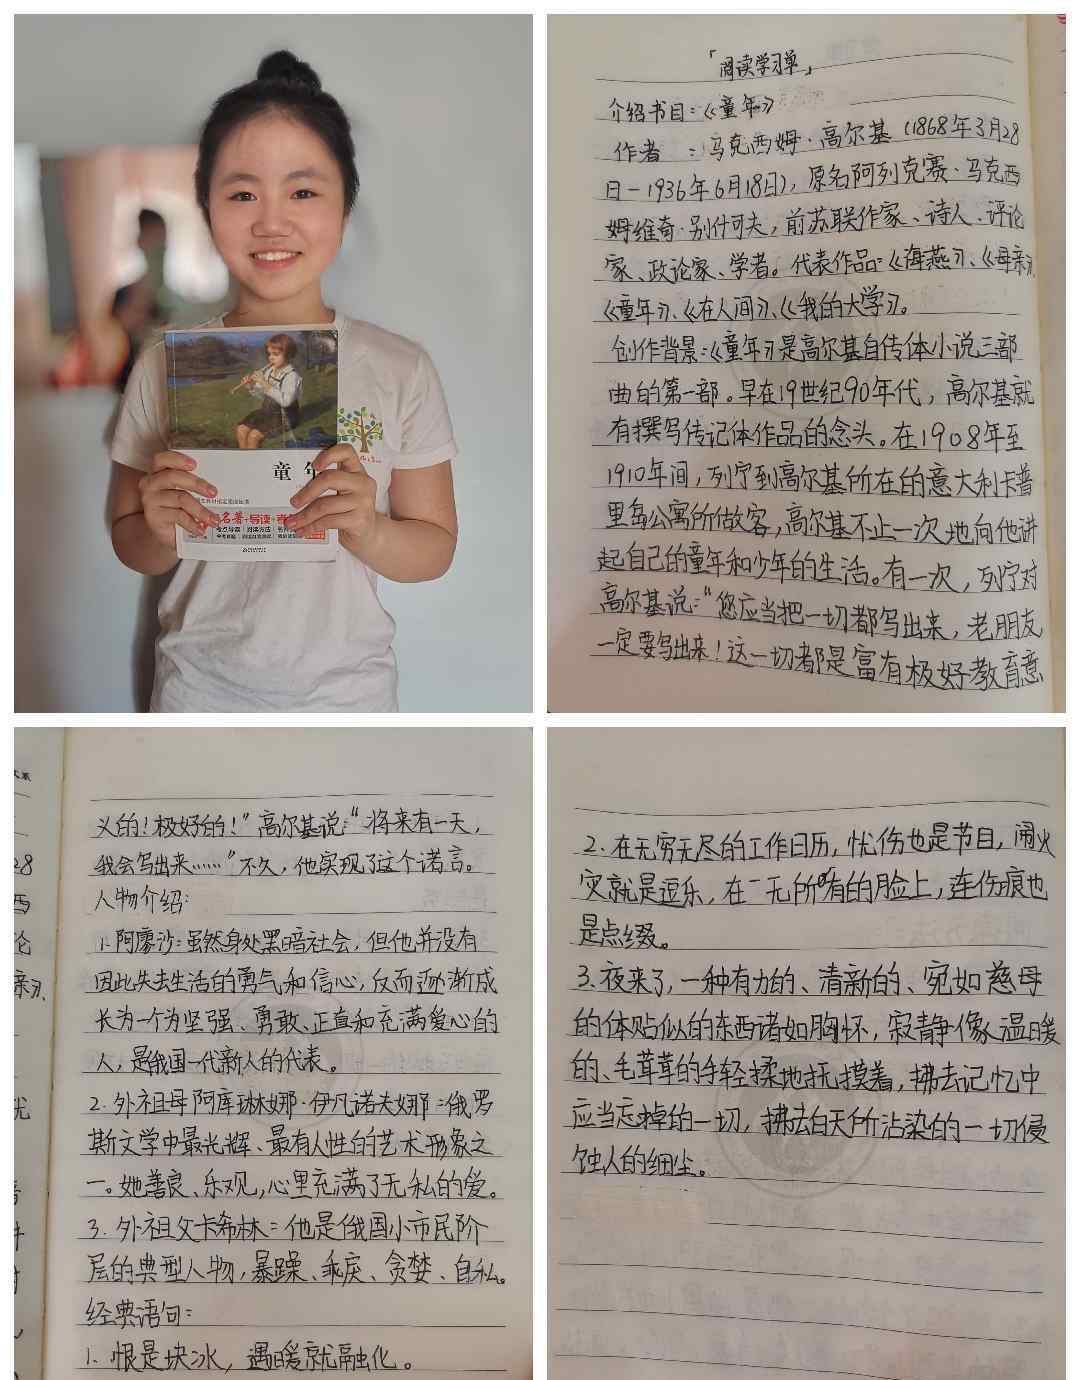 童年
名著+导读+考
「阅读学习单」
介绍书目:《童年》
作者 :马克西姆·高尔基(1868年3月28
日-1936年6月18日),原名阿列克赛·马克西
姆维奇·别什可夫,前苏联作家、诗人、评论
家、政论家、学者。代表作品:《海燕》、《母亲》、
《童年》、《在人间》、《我的大学》。
创作背景:《童年》是高尔基自传体小说三部
曲的第一部。早在19世纪90年代,高尔基就
有撰写传记体作品的念头。在1908年至
1910年间,列宁到高尔基所在的意大利卡普
里岛公寓所做客,高尔基不止一次地向他讲
起自己的童年和少年的生活。有一次,列宁对
高尔基说:“您应当把一切都写出来,老朋友
一定要写出来!这一切都是富有极好教育意
义的!极好的!”高尔基说:“将来有一天,
我会写出来……”不久,他实现了这个诺言。
人物介绍:
1.阿廖沙:虽然身处黑暗社会,但他并没有
因此失去生活的勇气和信心,反而逐渐成
长为一个为坚强、勇敢、正直和充满爱心的
人,是俄国一代新人的代表。
2.外祖母阿库琳娜·伊凡诺夫娜:俄罗
斯文学中最光辉、最有人性的艺术形象之
一。她善良、乐观,心里充满了无私的爱。
3.外祖父卡希林:他是俄国小市民阶
层的典型人物,暴躁、乖戾、贪婪、自私。
经典语句:
1.恨是块冰,遇暖就融化。
2.在无穷无尽的工作日历,忧伤也是节目,闹火
灾就是逗乐,在一无所有的脸上,连伤痕也
是点缀。
3.夜来了,一种有力的、清新的、宛如慈母
的体贴似的东西诸如胸怀,寂静像温暖
的、毛茸茸的手轻揉地抚摸着,拂去记忆中
应当忘掉的一切,拂去白天所沾染的一切侵
蚀人的细尘。